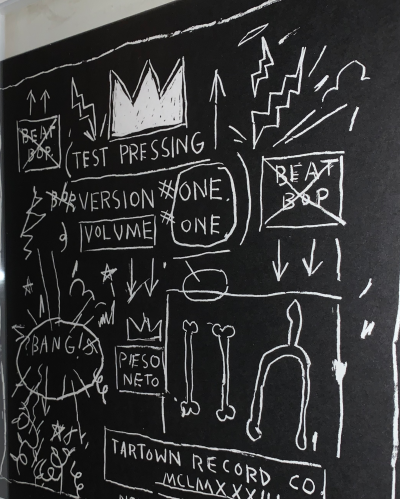 BEAT
BOP
TEST PRESSING
BEAT
BOP
VERSION #ONE.
VOLUME # ONE.
!BANG!
PESO
NETO
TARTOWN RECORD CO